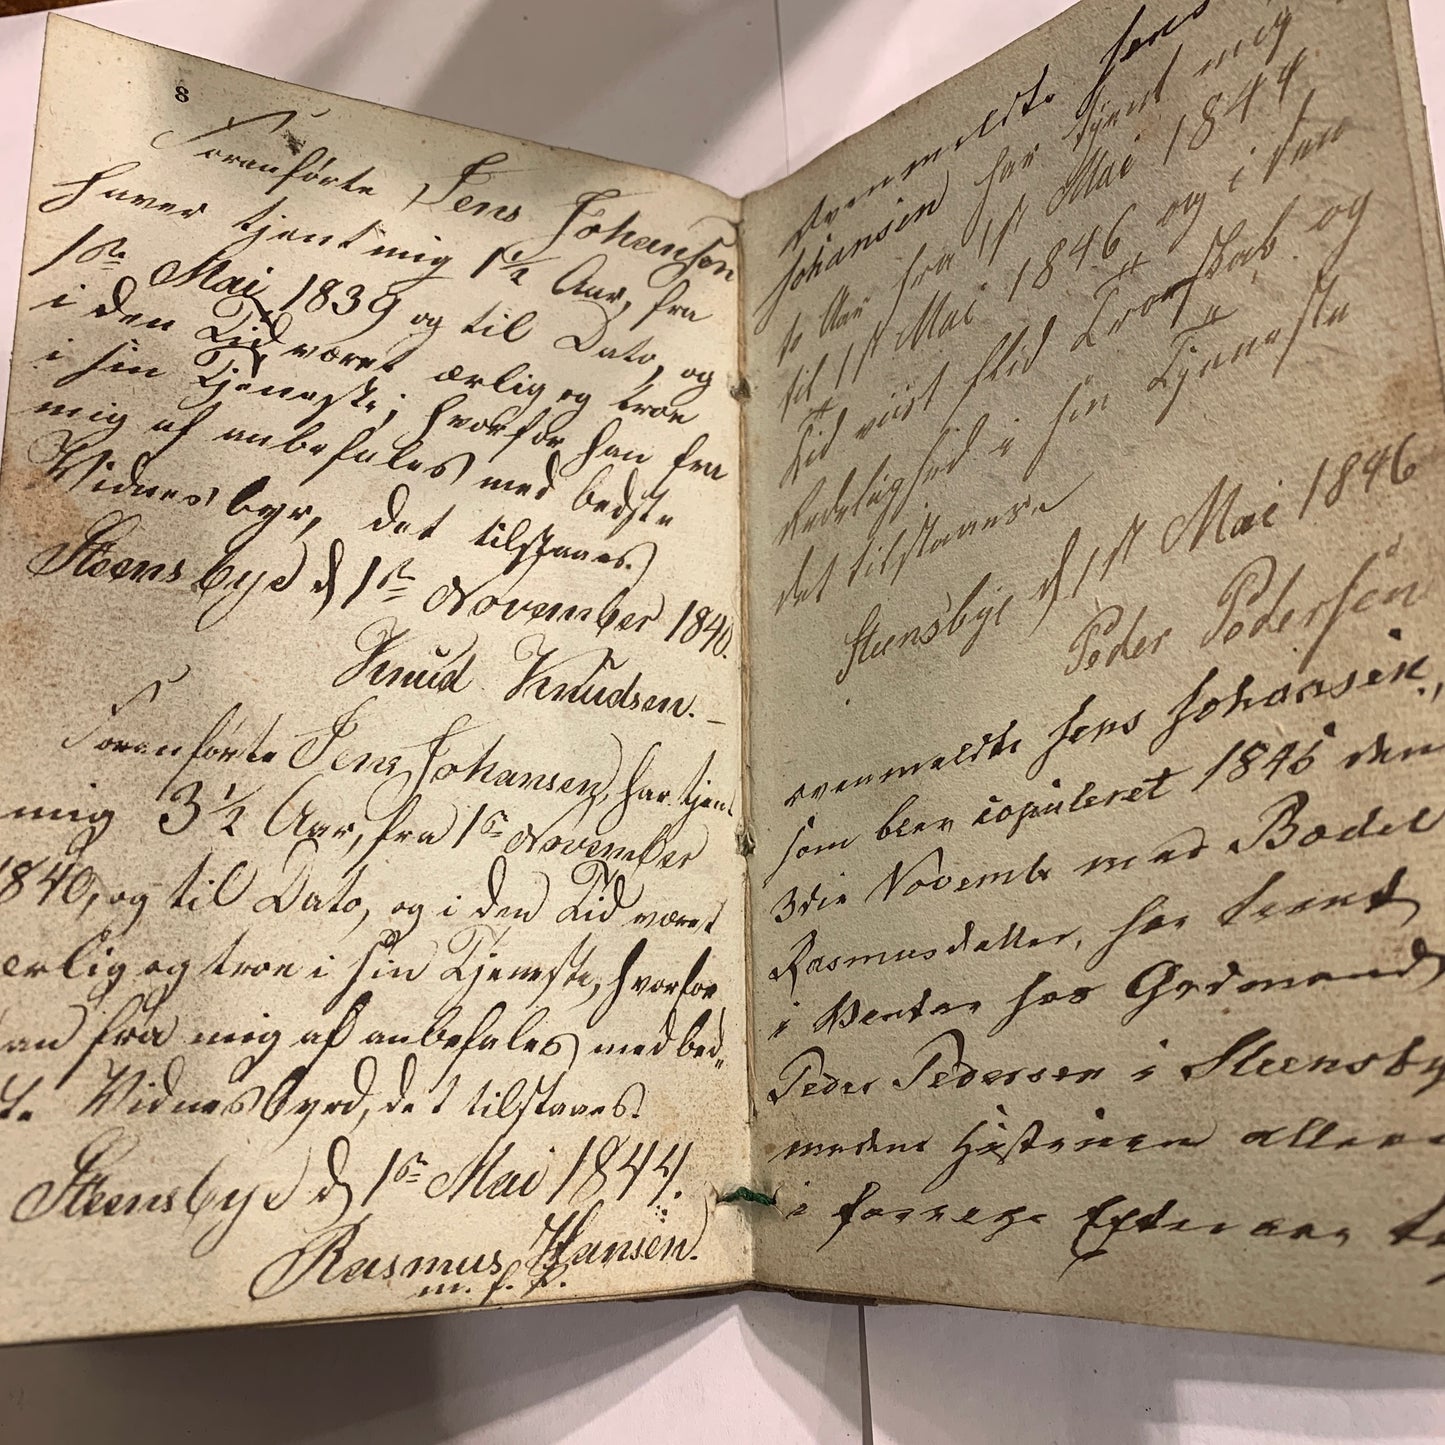 8
Foranførte Jens Johansen
haver tjent mig 1½ Aar, fra
1ste Mai 1839 og til Dato, og
i den Tid været ærlig og troe
i sin Tjeneste; hvorfor han fra
mig af anbefales med bedste
Vidnesbyr, det tilstaaes
Steensbye d 1ste November 1840.
Knud Knudsen.
Foranførte Jens Johansen, har tjent
mig 3½ Aar, fra 1ste November
1840, og til Dato, og i den Tid været
ærlig og troe i sin Tjeneste, hvorfor
han fra mig af anbefales med bed„
ste Vidnesbyrd, det tilstaaes.
Steensbye d 1ste Mai 1844.
Rasmus Hansen.
m. f. P.
Ovenmeldte Jens
Johansen har tjent mig
to Aar fra 1st Mai 1844
til 1st Mai 1846 og i den
Tid viist flid Troskab og
Redelighed i sin Tjeneste
det tilstaaes
Steensbye d 1st Mai 1846
Peder Pedersen
ovenmeldte Jens Johansen,
som blev copuleret 1845 den
3die Novemb med Bodel
Rasmusdatter, har tient
i Venter hos Grdmand
Peder Pedersen i Steensby
medens Hustruen allere
i forrige Efteraar